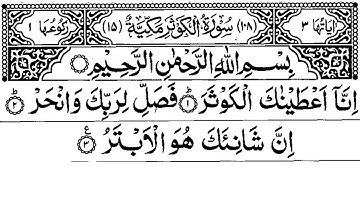 اٰیاتها ٣ (١٠٨) سُوْرَةُ الْكَوْثَرِ مَكِّيَّةٌ (١٥) رکوعها ١
بِسْمِ اللّٰهِ الرَّحْمٰنِ الرَّحِيْمِ
اِنَّاۤ اَعْطَيْنٰكَ الْكَوْثَرَ ١ فَصَلِّ لِرَبِّكَ وَانْحَرْ ٢
اِنَّ شَانِئَكَ هُوَ الْاَبْتَرُ ٣ ع